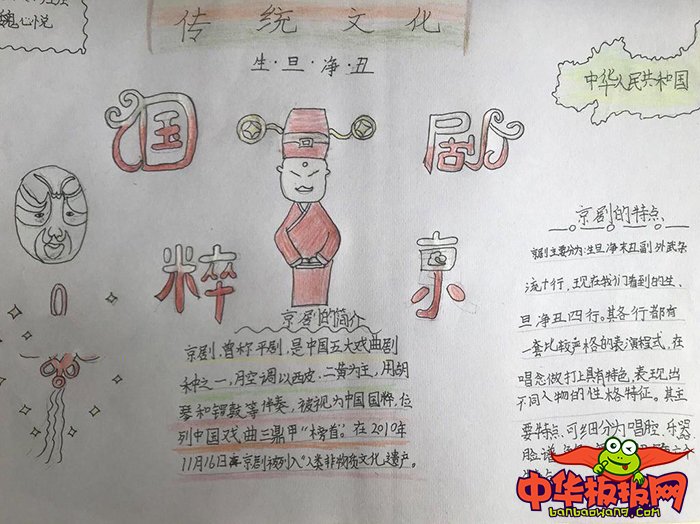 魏心悦
传统文化
生·旦·净·丑
中华人民共和国
国粹
京剧
京剧的简介
京剧,曾称平剧,是中国五大戏曲剧
种之一,月空调以西皮、二黄为主,用胡
琴和锣鼓等伴奏,被视为中国国粹,位
列中国戏曲三鼎甲“榜首”。在2010年
11月16日京剧被列入“人类非物质文化遗产。
京剧的特点
京剧主要分为:生旦净末丑副外武杂
流十行,现在我们看到的生、
旦净丑四行。其各行都有
一套比较严格的表演程式,在
唱念做打上具有特色,表现出
不同人物的性格特征。其主
要特点、可细分为唱腔、乐器
脸谱
中华板报网
banbaowang.com